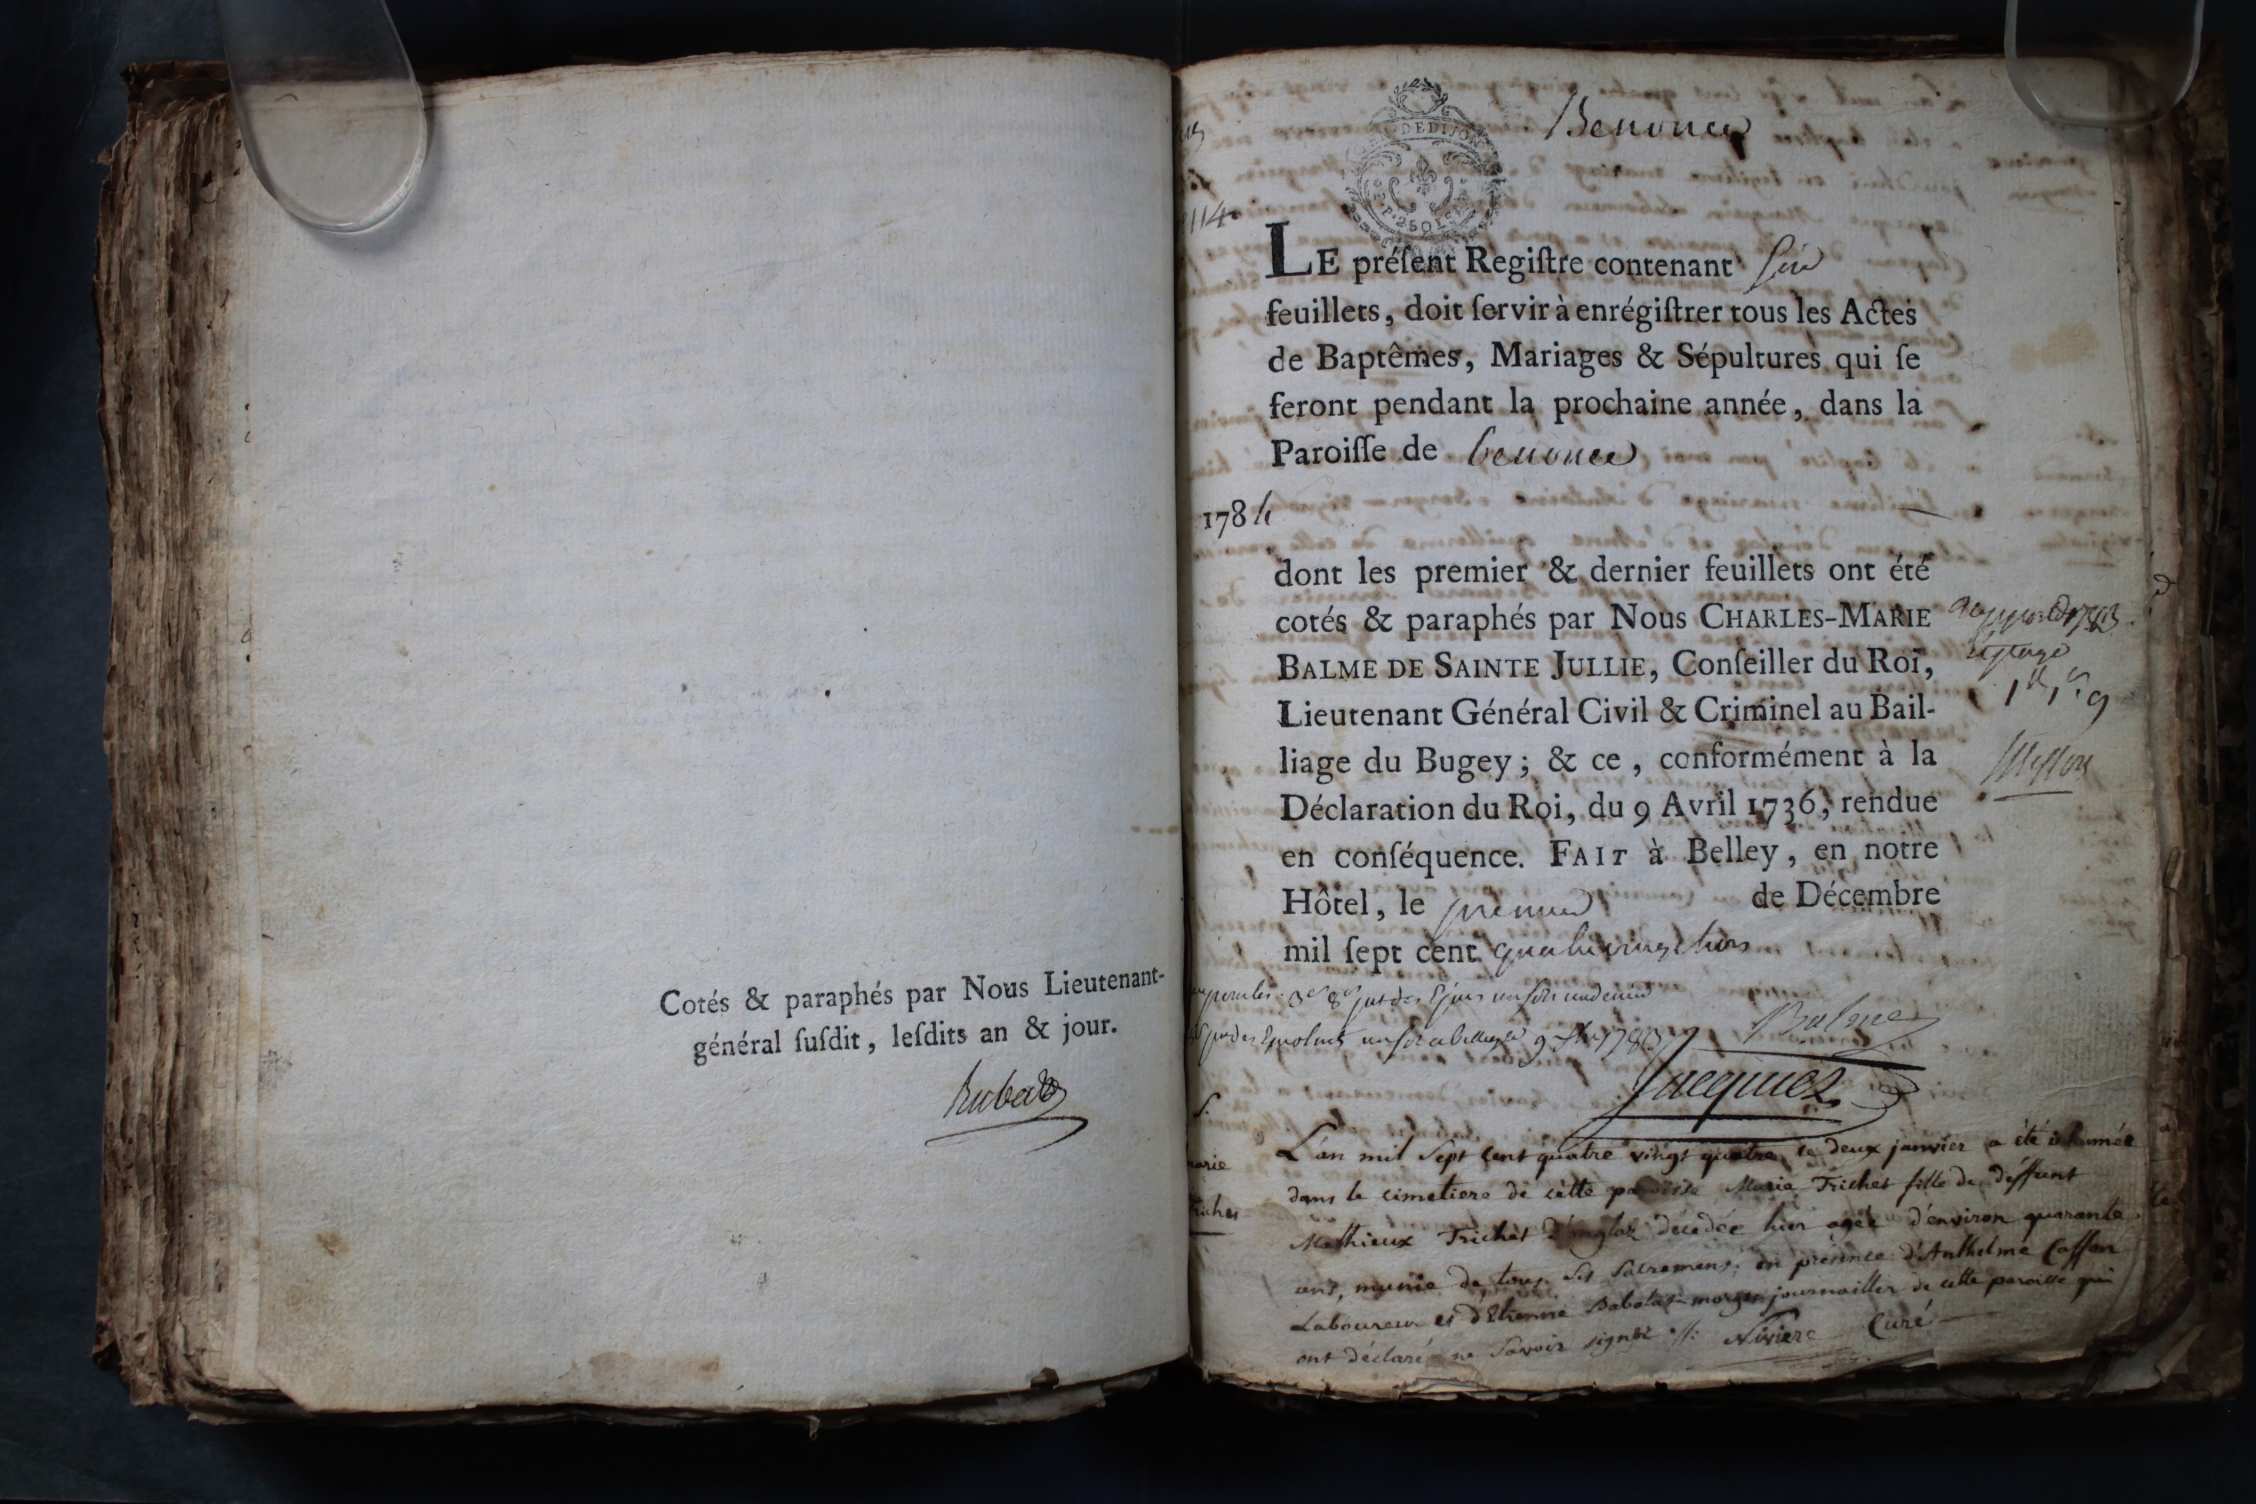 Cotés & paraphés par Nous Lieutenant-
général ſuſdit, leſdits an & jour.
Rubat
Benonce
DE DIJON
114
LE préſent Regiſtre contenant Six
feuillets, doit ſervir à enrégiſtrer tous les Actes
de Baptêmes, Mariages & Sépultures qui ſe
feront pendant la prochaine année, dans la
Paroiſſe de benonce
1784
dont les premier & dernier feuillets ont été
cotés & paraphés par Nous CHARLES-MARIE
BALME DE SAINTE JULLIE, Conſeiller du Roi,
Lieutenant Général Civil & Criminel au Bail-
liage du Bugey ; & ce, conformément à la
Déclaration du Roi, du 9 Avril 1736, rendue
en conſéquence. FAIT à Belley, en notre
Hôtel, le premier de Décembre
mil ſept cent quatrevingt trois
Balme
1783
Jacquier
S.
marie
Trichet
L'an mil Sept Cent quatre vingt quatre, le deux janvier a été inhumée
dans le cimetiere de cette paroisse Marie Trichet fille de deffunt
Mathieux Trichet décedée hier agée d'environ quarante
ans, munie de tous Ses Sacremens, en présence d'Anthelme
Laboureur et d'Etienne Babolat journailler de cette paroisse qui
ont déclaré ne Savoir signer //: Niviere Curé